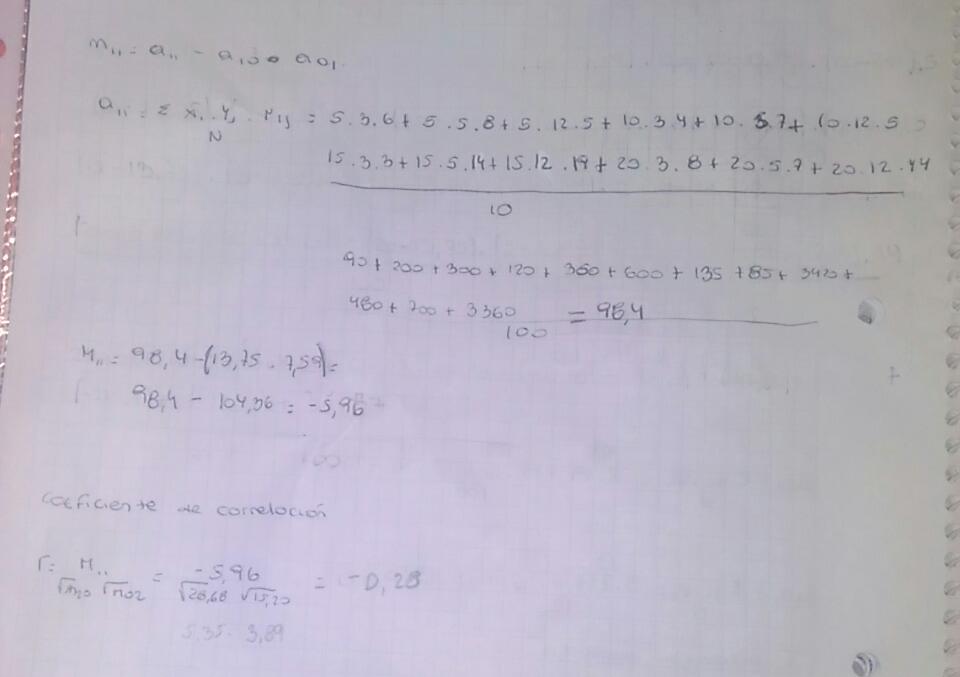 m₁₁ = a₁₁ - a₁₀ · a₀₁
a₁₁ = Σ xᵢ . Yⱼ . nᵢⱼ = 5.3.6 + 5.5.8 + 5.12.5 + 10.3.4 + 10.5.7 + 10.12.5
N
15.3.3 + 15.5.14 + 15.12.19 + 20.3.8 + 20.5.7 + 20.12.14
10
90 + 200 + 300 + 120 + 360 + 600 + 135 + 85 + 3420 +
480 + 700 + 3360 = 98,4
100
M₁₁ = 98,4 - (13,75 . 7,59) =
98,4 - 104,36 = -5,96
Coeficiente de correlación
r = M₁₁ = -5,96 = -0,28
√m₂₀ √m₀₂ √28,68 √15,20
5,35 . 3,89